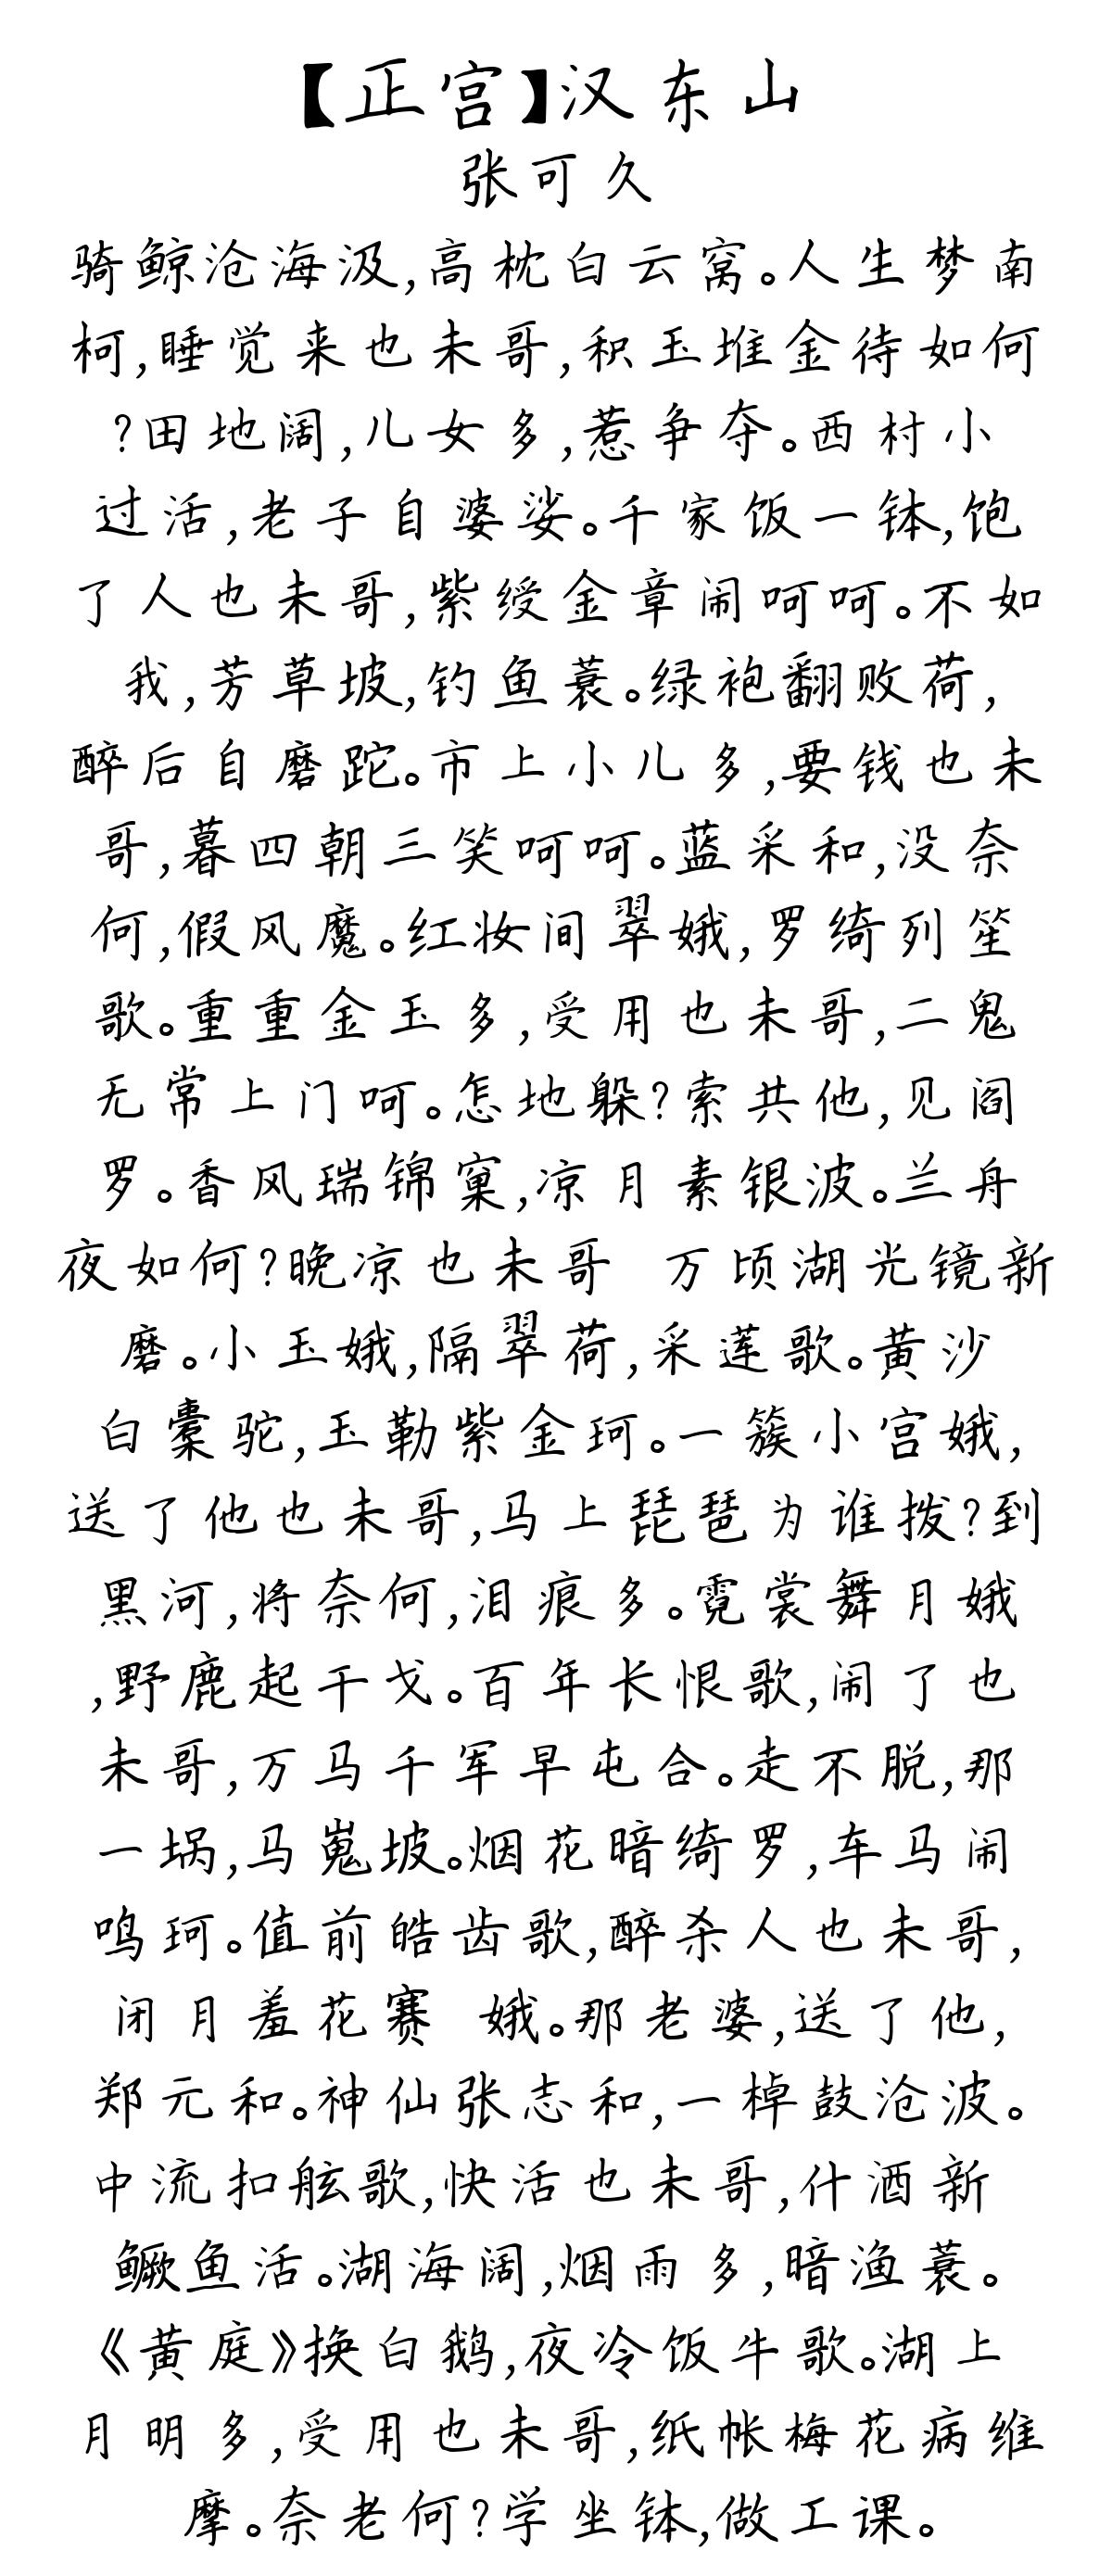 【正宫】汉东山
张可久
骑鲸沧海汲,高枕白云窝。人生梦南
柯,睡觉来也未哥,积玉堆金待如何
?田地阔,儿女多,惹争夺。西村小
过活,老子自婆娑。千家饭一钵,饱
了人也未哥,紫绶金章闹呵呵。不如
我,芳草坡,钓鱼蓑。绿袍翻败荷,
醉后自磨跎。市上小儿多,要钱也未
哥,暮四朝三笑呵呵。蓝采和,没奈
何,假风魔。红妆间翠娥,罗绮列笙
歌。重重金玉多,受用也未哥,二鬼
无常上门呵。怎地躲?索共他,见阎
罗。香风瑞锦窠,凉月素银波。兰舟
夜如何?晚凉也未哥 万顷湖光镜新
磨。小玉娥,隔翠荷,采莲歌。黄沙
白橐驼,玉勒紫金珂。一簇小宫娥,
送了他也未哥,马上琵琶为谁拨?到
黑河,将奈何,泪痕多。霓裳舞月娥
,野鹿起干戈。百年长恨歌,闹了也
未哥,万马千军早屯合。走不脱,那
一埚,马嵬坡。烟花暗绮罗,车马闹
鸣珂。值前皓齿歌,醉杀人也未哥,
闭月羞花赛 娥。那老婆,送了他,
郑元和。神仙张志和,一棹鼓沧波。
中流扣舷歌,快活也未哥,什酒新
鳜鱼活。湖海阔,烟雨多,暗渔蓑。
《黄庭》换白鹅,夜冷饭牛歌。湖上
月明多,受用也未哥,纸帐梅花病维
摩。奈老何?学坐钵,做工课。